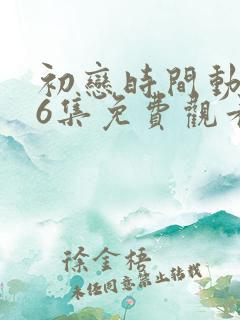 初戀時間動
6集免費觀看
徐金梧
未经同意禁止转载